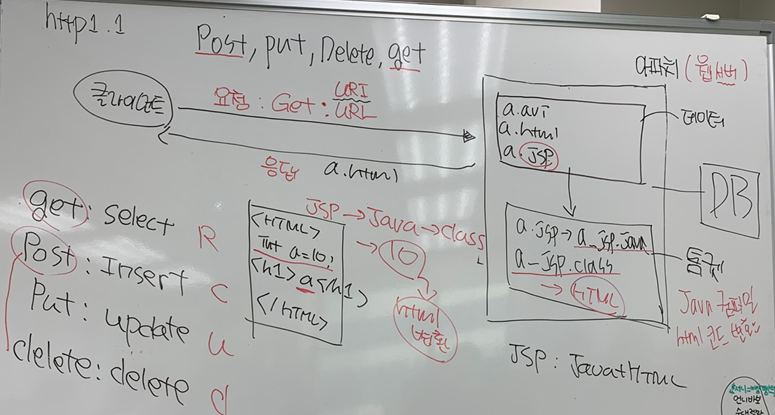 http1.1
Post, put, Delete, get
아파치 (웹서버)
클라이언트
요청 : Get : URI
URL
응답 a.html
a.avi
a.html
a.JSP
데이터
DB
a.JSP → a_jsp.java
a_jsp.class
→ HTML
톰켓
Java 컴파일
html 코드 변환
JSP : Java+HTML
get : select R
Post : Insert C
Put : update u
delete : delete d
<HTML>
Int a=10;
<h1> a </h1>
</HTML>
JSP → Java → class
→ 10
html
변환
언니바보